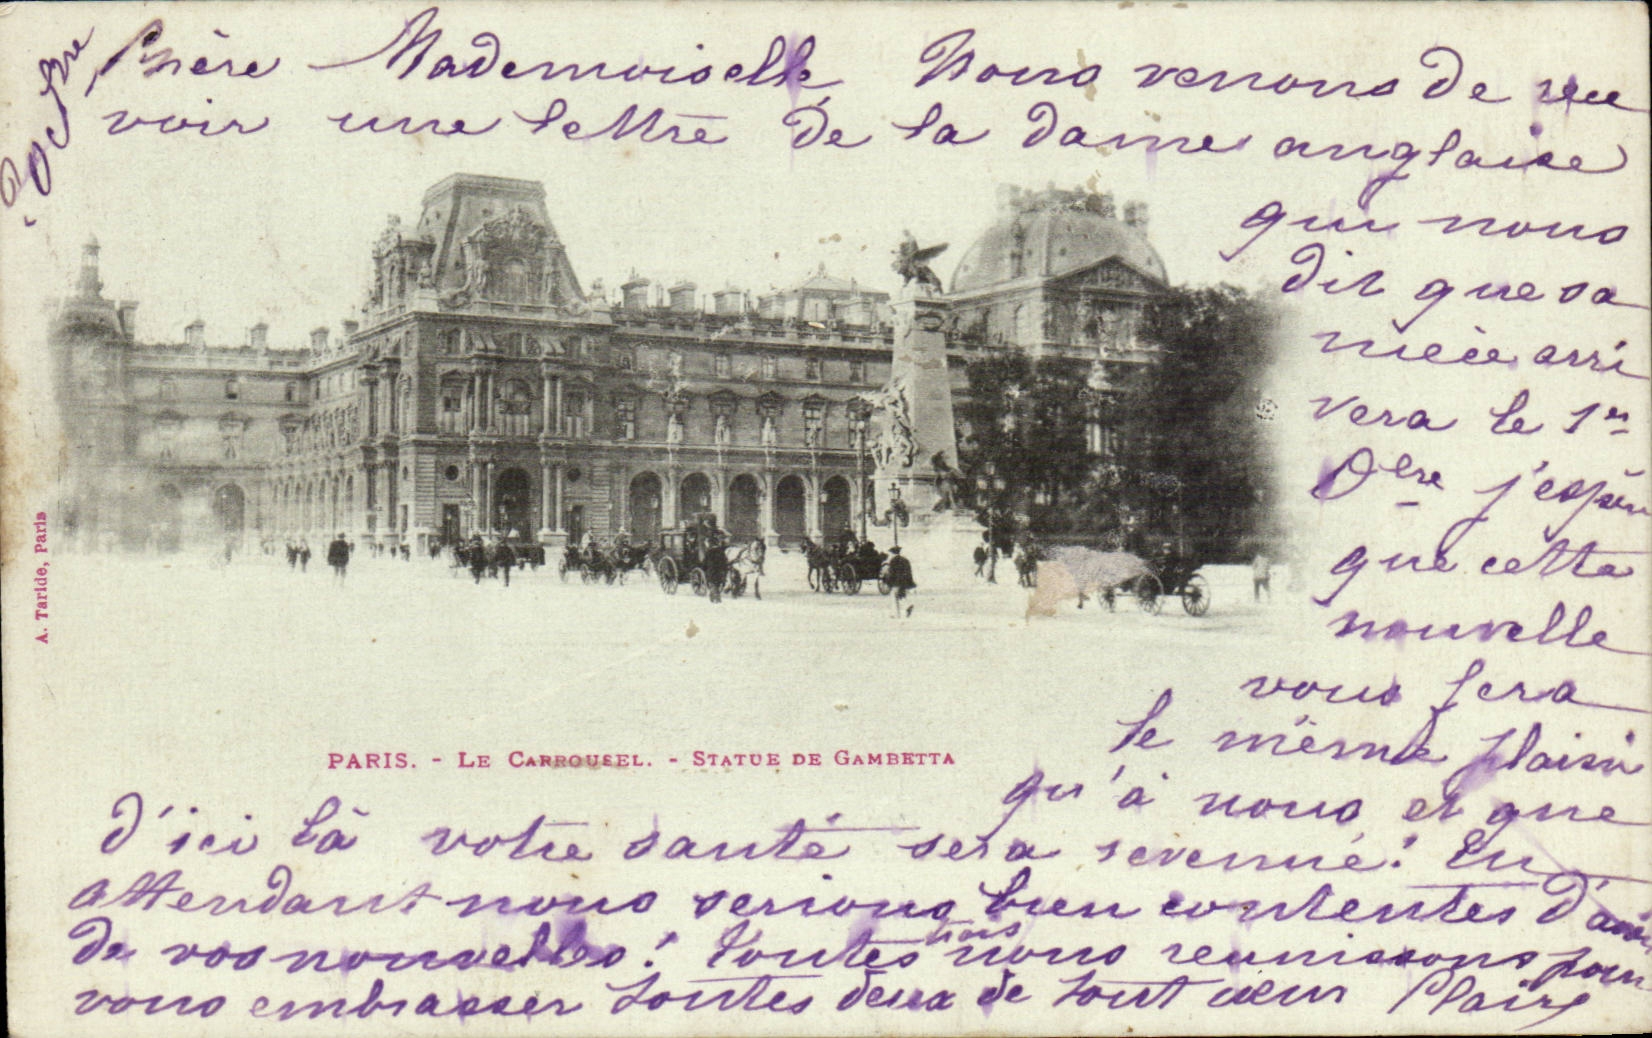 20 8bre
Chère Mademoiselle Nous venons de rece
voir une lettre de la dame anglaise
qui nous
dit que sa
nièce arri
vera le 1er
Obre j'espère
que cette
nouvelle
vous fera
le même plaisir
qu'à nous et que
d'ici là votre santé sera revenue! En
attendant nous serions bien contentes d'avoir
de vos nouvelles! Toutes trois nous reunissons pour
vous embrasser toutes deux de tout cœur Claire
PARIS. - LE CARROUSEL. - STATUE DE GAMBETTA
A. Taride, Paris